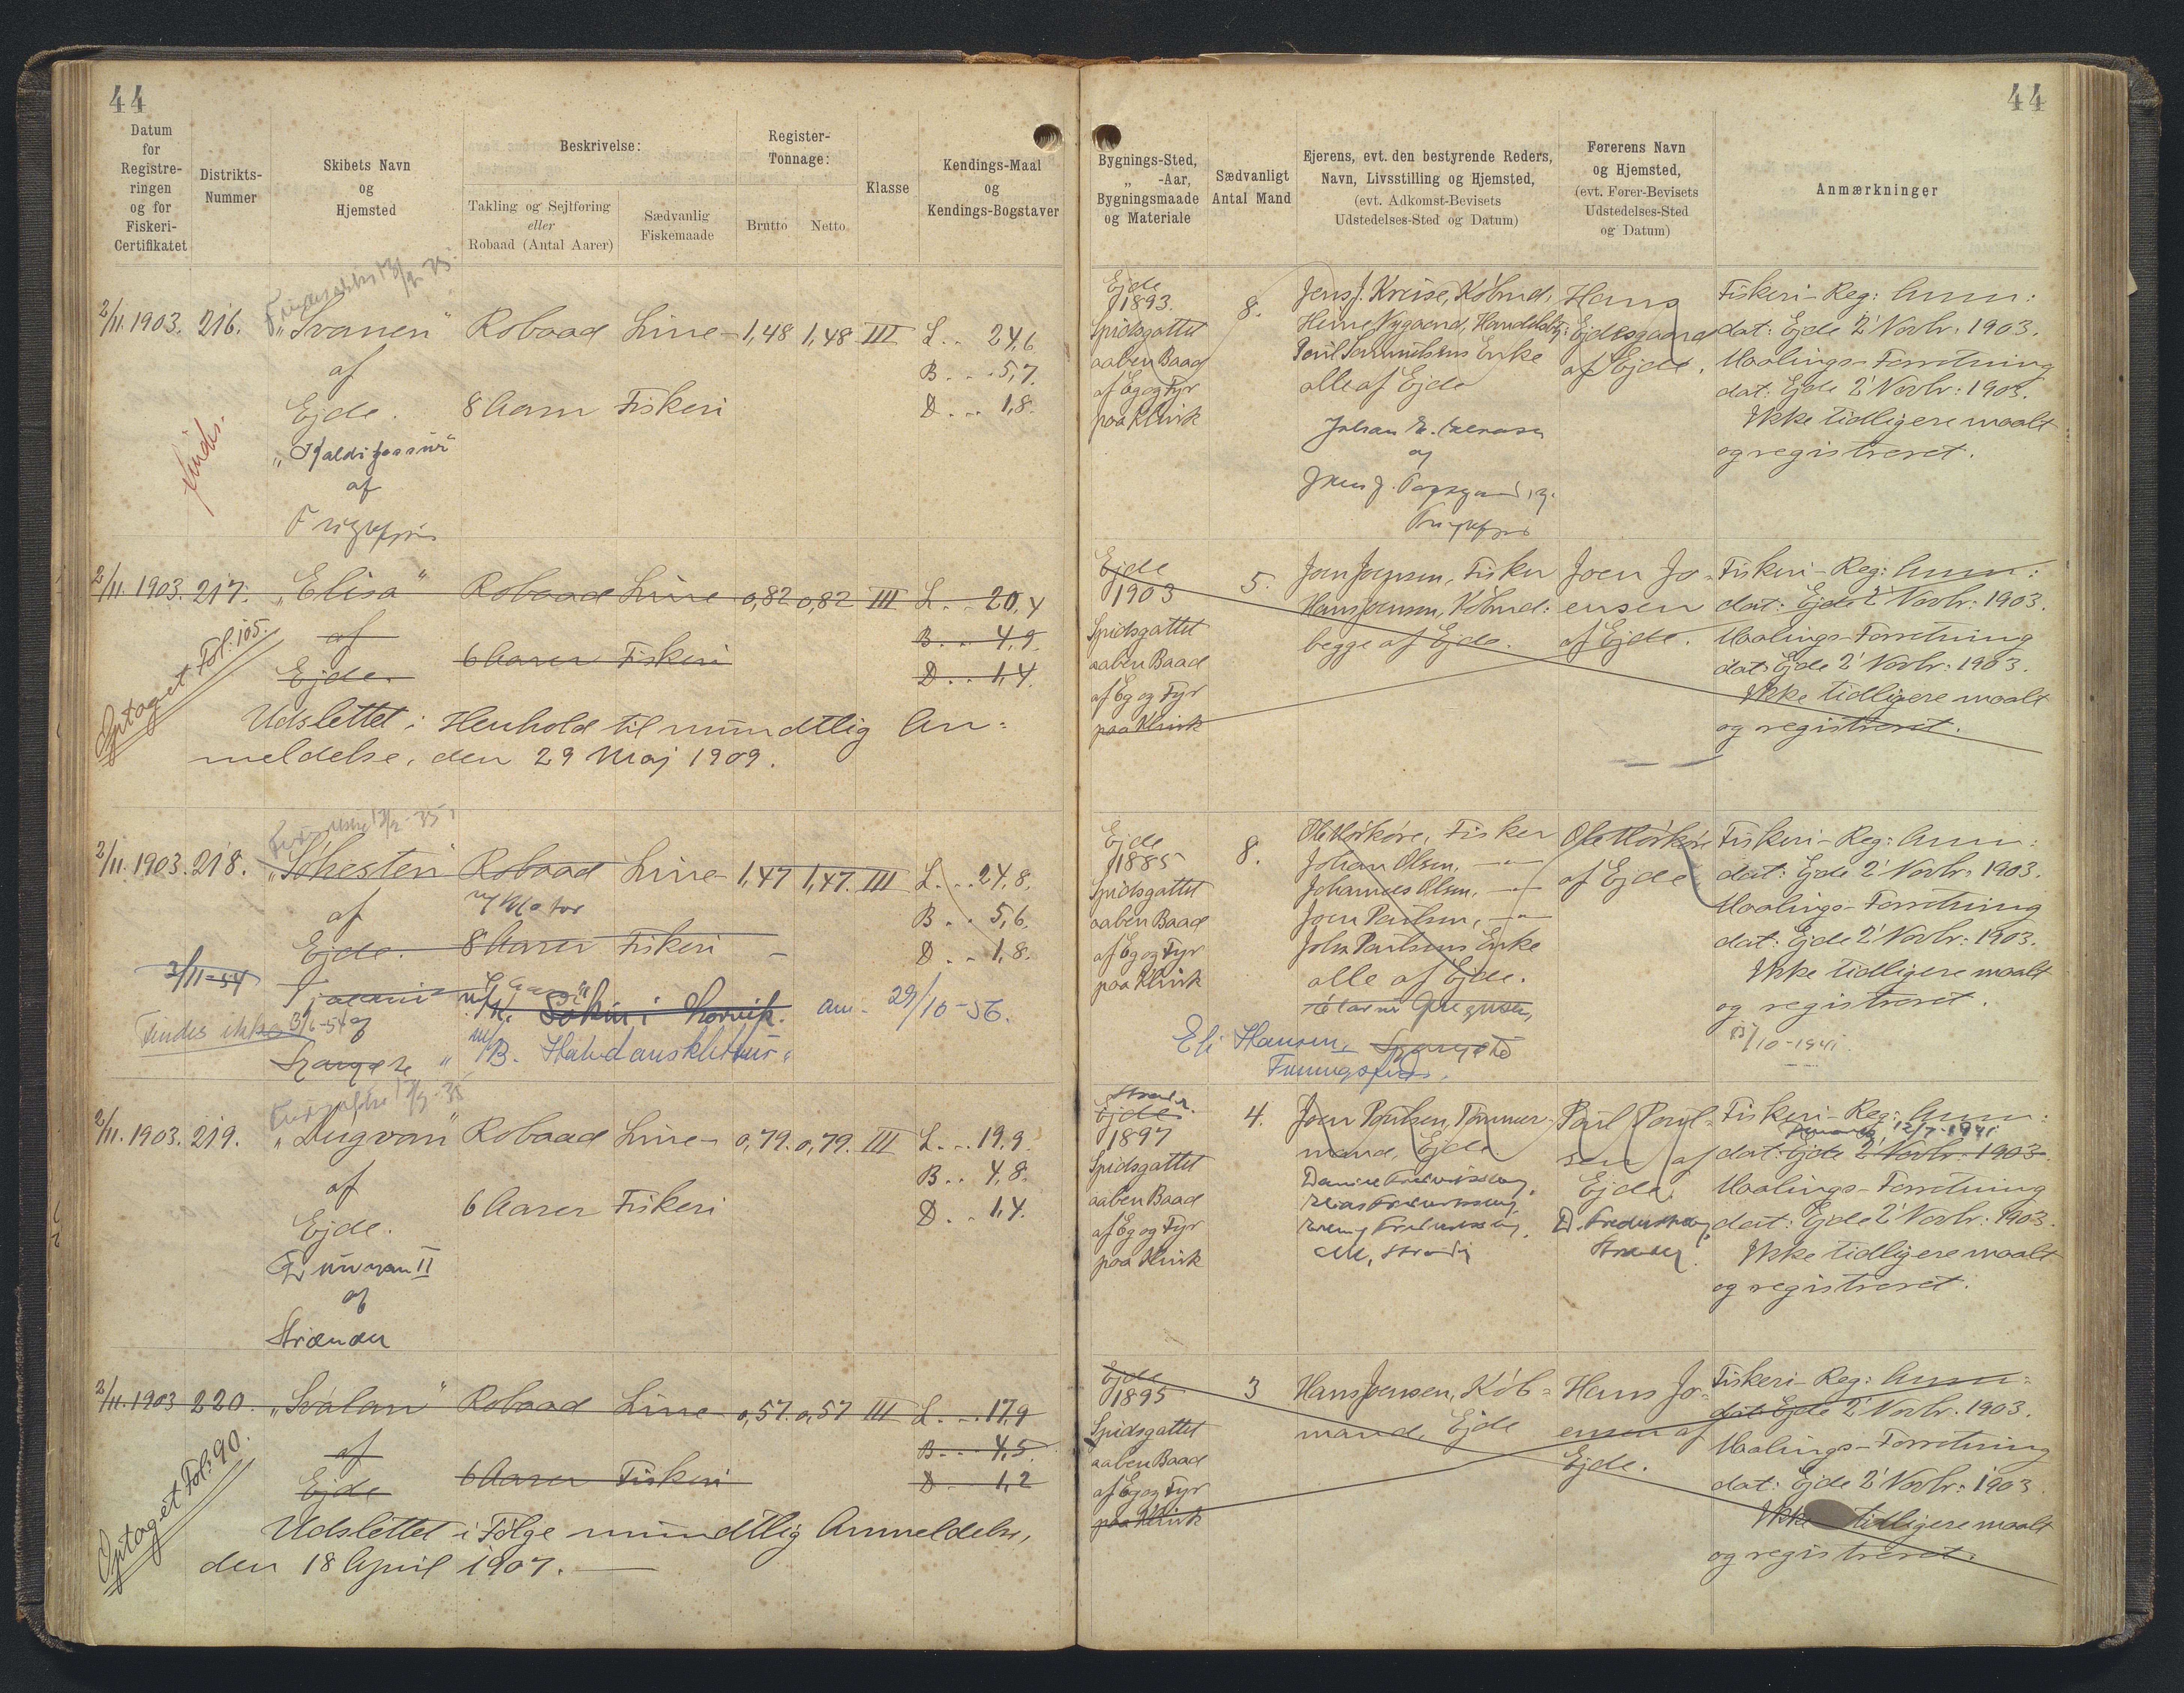 44
44
Datum
for
Registre-
ringen
og for
Fiskeri-
Certifikatet
Distrikts-
Nummer
Skibets Navn
og
Hjemsted
Beskrivelse:
Takling og Sejlføring
eller
Robaad (Antal Aarer)
Sædvanlig
Fiskemaade
Register-
Tonnage:
Brutto
Netto
Klasse
Kendings-Maal
og
Kendings-Bogstaver
Bygnings-Sted,
„ -Aar,
Bygningsmaade
og Materiale
Sædvanligt
Antal Mand
Ejerens, evt. den bestyrende Reders,
Navn, Livsstilling og Hjemsted,
(evt. Adkomst-Bevisets
Udstedelses-Sted og Datum)
Førerens Navn
og Hjemsted,
(evt. Fører-Bevisets
Udstedelses-Sted
og Datum)
Anmærkninger
2/11. 1903. 216. „Svanen“ Robaad Line- 1,48 1,48 III L. . 24,6
af B. . . 5,7.
Ejde. 8 Aarer Fiskeri D . . . 1,8.
finds.
af
Ejde
1893.
Spidsgattet
aaben Baad
af Eg og Fyr
paa Klink
8.
Jens J. Kreise, Købmd:
Heine Nygaard,
Poul Samuelsens Enke
alle af Ejde
og
Hans
Ejdesgaard
af Ejde.
Fiskeri-Reg: Anm:
dat: Ejde 2' Novbr: 1903.
Maalings-Forretning
dat: Ejde 2' Novbr: 1903.
Ikke tidligere maalt
og registreret.
2/11. 1903. 217. „Elisa“ Robaad Line 0,82 0,82 III L. . 20,4
af B. . 4,9.
Ejde. 6 Aarer Fiskeri D . . 1,4.
Optaget Fol. 105.
Udslettet i Henhold til mundtlig An=
meldelse, den 29 Maj 1909.
Ejde
1903
Spidsgattet
aaben Baad
af Eg og Fyr
paa Klink
5.
Joen Joensen, Fisker
Hans Joensen, Købmd:
begge af Ejde.
Joen Jo-
ensen
af Ejde.
Fiskeri-Reg: Anm:
dat: Ejde 2' Novbr: 1903.
Maalings-Forretning
dat: Ejde 2' Novbr: 1903.
Ikke tidligere maalt
og registreret.
2/11. 1903. 218. „Søhesten“ Robaad Line- 1,47 1,47. III L. . . 24,8.
af m/Motor B. . 5,6.
Ejde. 8 Aarer Fiskeri - D . . 1,8.
2/11-54
Findes ikke 3/6-54
af
am. 29/10-56.
Ejde
1885
Spidsgattet
aaben Baad
af Eg og Fyr
paa Klink
8.
Ole Mørkøre, Fisker
Johan Olsen, —〃—
Johannes Olsen, —〃—
Joen Poulsen, —〃—
Johs Poulsens Enke
alle af Ejde.
Eli Hansen,
Ole Mørkøre
af Ejde
Fiskeri-Reg: Anm:
dat: Ejde 2' Novbr: 1903.
Maalings-Forretning
dat: Ejde 2' Novbr: 1903.
Ikke tidligere maalt
og registreret.
/10-1941.
2/11. 1903. 219. „Dugvan“ Robaad Line- 0,79. 0,79. III L. . . 19,9.
af B. . 4,8.
Ejde. 6 Aarer Fiskeri D . . 1,4.
af
Ejde
1897
Spidsgattet
aaben Baad
af Eg og Fyr
paa Klink
4.
Joen Poulsen, Tømmer-
mand, Ejde.
Poul Poul-
sen af
Ejde.
Fiskeri-Reg: Anm:
12/7-1941
dat: Ejde 2' Novbr: 1903.
Maalings-Forretning
dat: Ejde 2' Novbr: 1903.
Ikke tidligere maalt
og registreret.
2/11. 1903 220. „Svalan“ Robaad Line- 0,57. 0,57 III L. . . 17,9
af B . . . 4,5.
Ejde 6 Aarer Fiskeri D . . 1,2
Optaget Fol: 90.
Udslettet i Følge mundtlig Anmeldelse,
den 18 April 1907.
Ejde
1895
Spidsgattet
aaben Baad
af Eg og Fyr
paa Klink
3
Hans Joensen, Køb=
mand, Ejde
Hans Jo-
ensen af
Ejde.
Fiskeri-Reg: Anm:
dat: Ejde 2' Novbr. 1903.
Maalings-Forretning
dat: Ejde 2' Novbr: 1903.
Ikke tidligere maalt
og registreret.